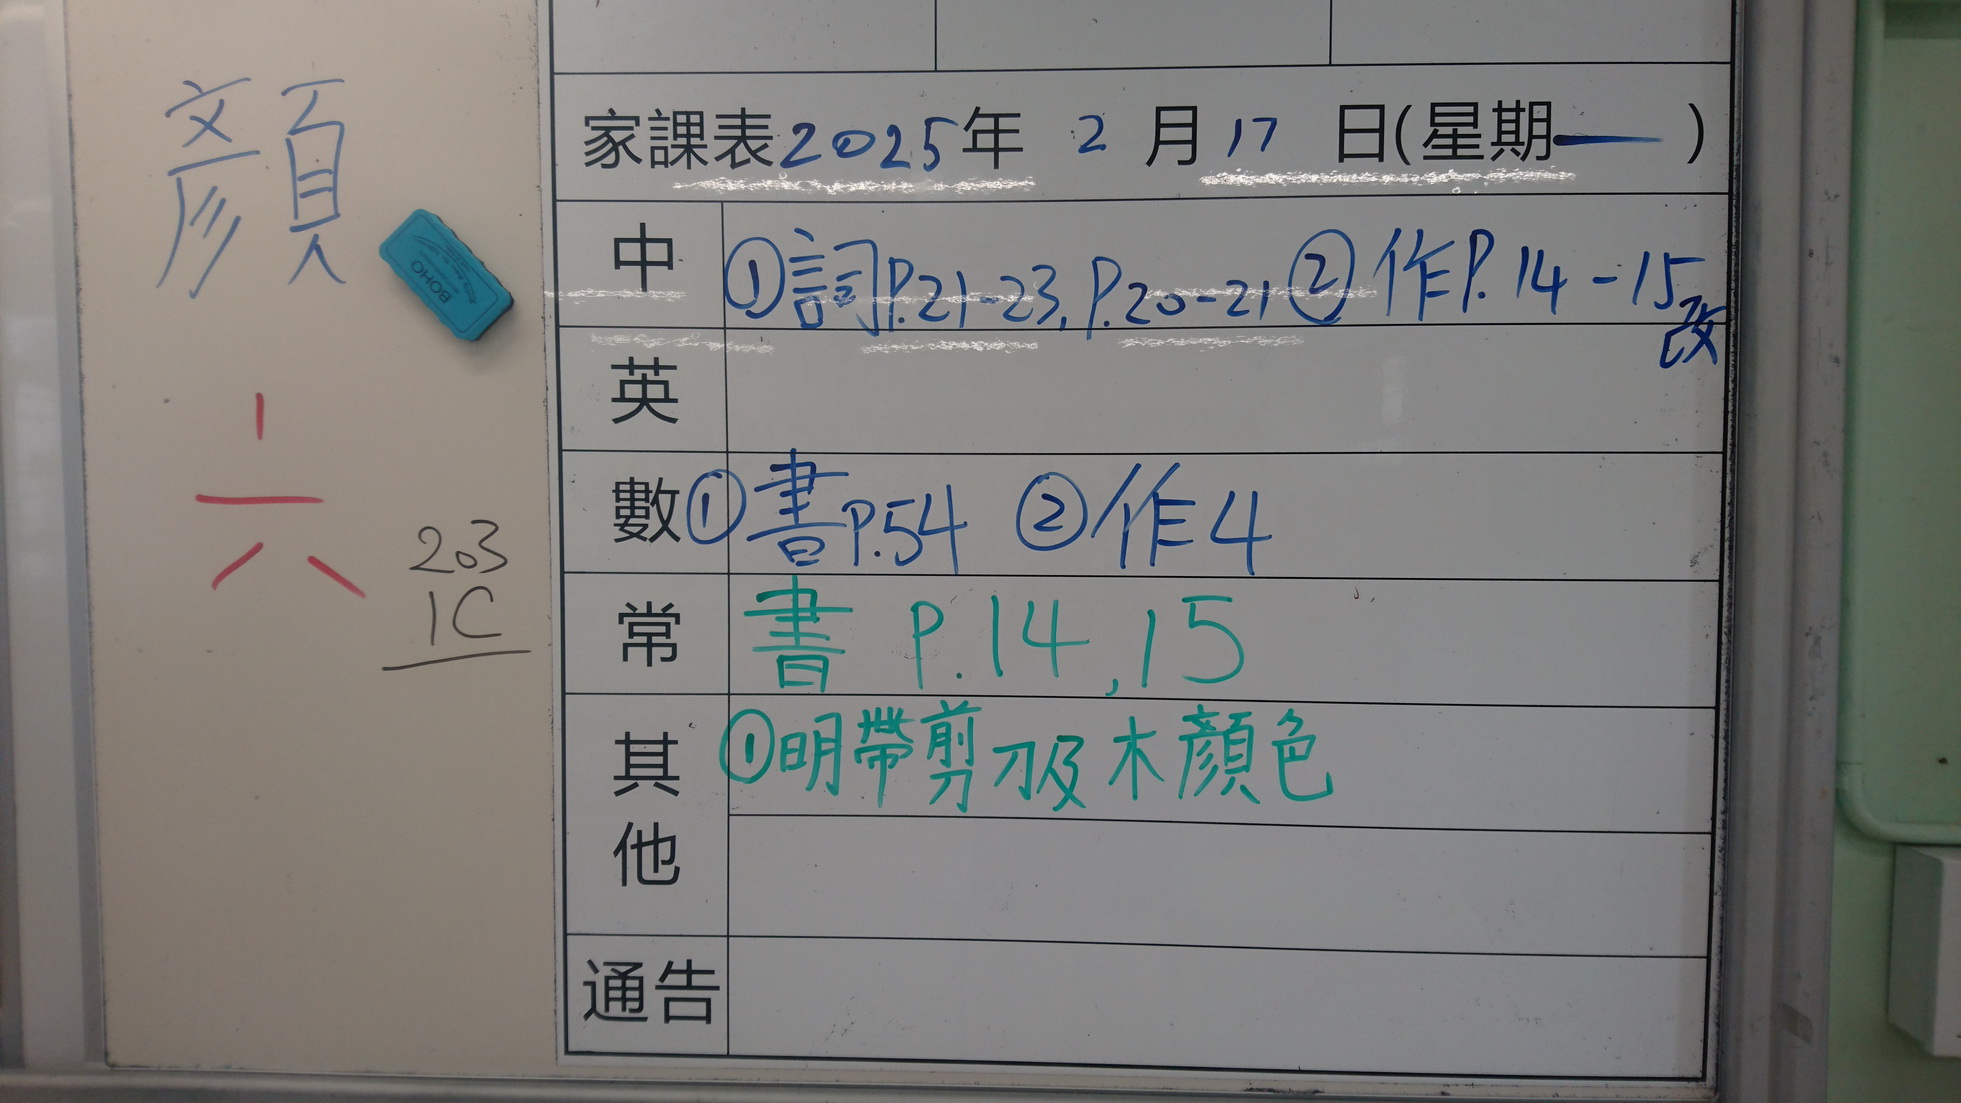 顏
BOHO
六
203
1C
家課表2025年 2 月 17 日(星期一)
中 ①詞P.21-23, P.20-21 ②作P.14-15改
英
數 ①書P.54 ②作4
常 書 P.14,15
其他 ①明帶剪刀及木顏色
通告